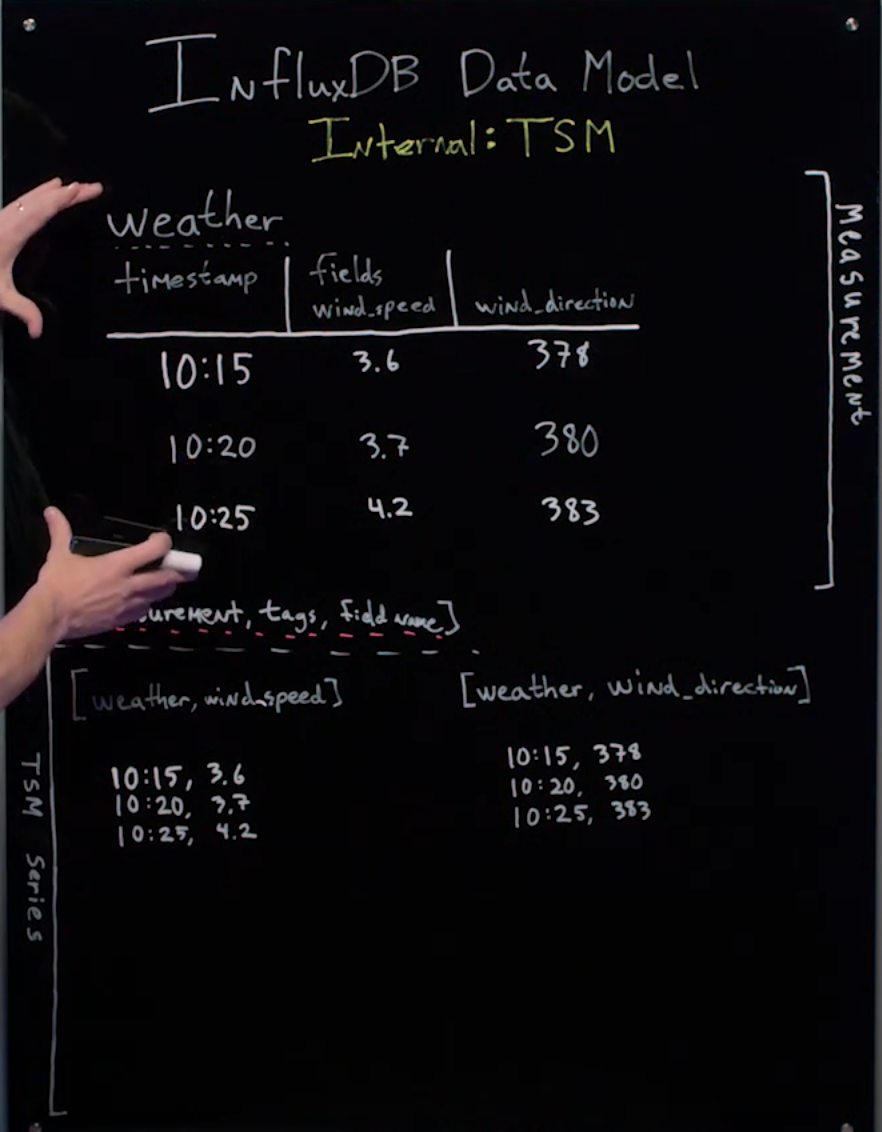 InfluxDB Data Model
Internal: TSM
weather
timestamp
fields
wind_speed
wind_direction
10:15 3.6 378
10:20 3.7 380
10:25 4.2 383
Measurement
urement, tags, field name]
[weather, wind_speed]
10:15, 3.6
10:20, 3.7
10:25, 4.2
[weather, wind_direction]
10:15, 378
10:20, 380
10:25, 383
TSM Series